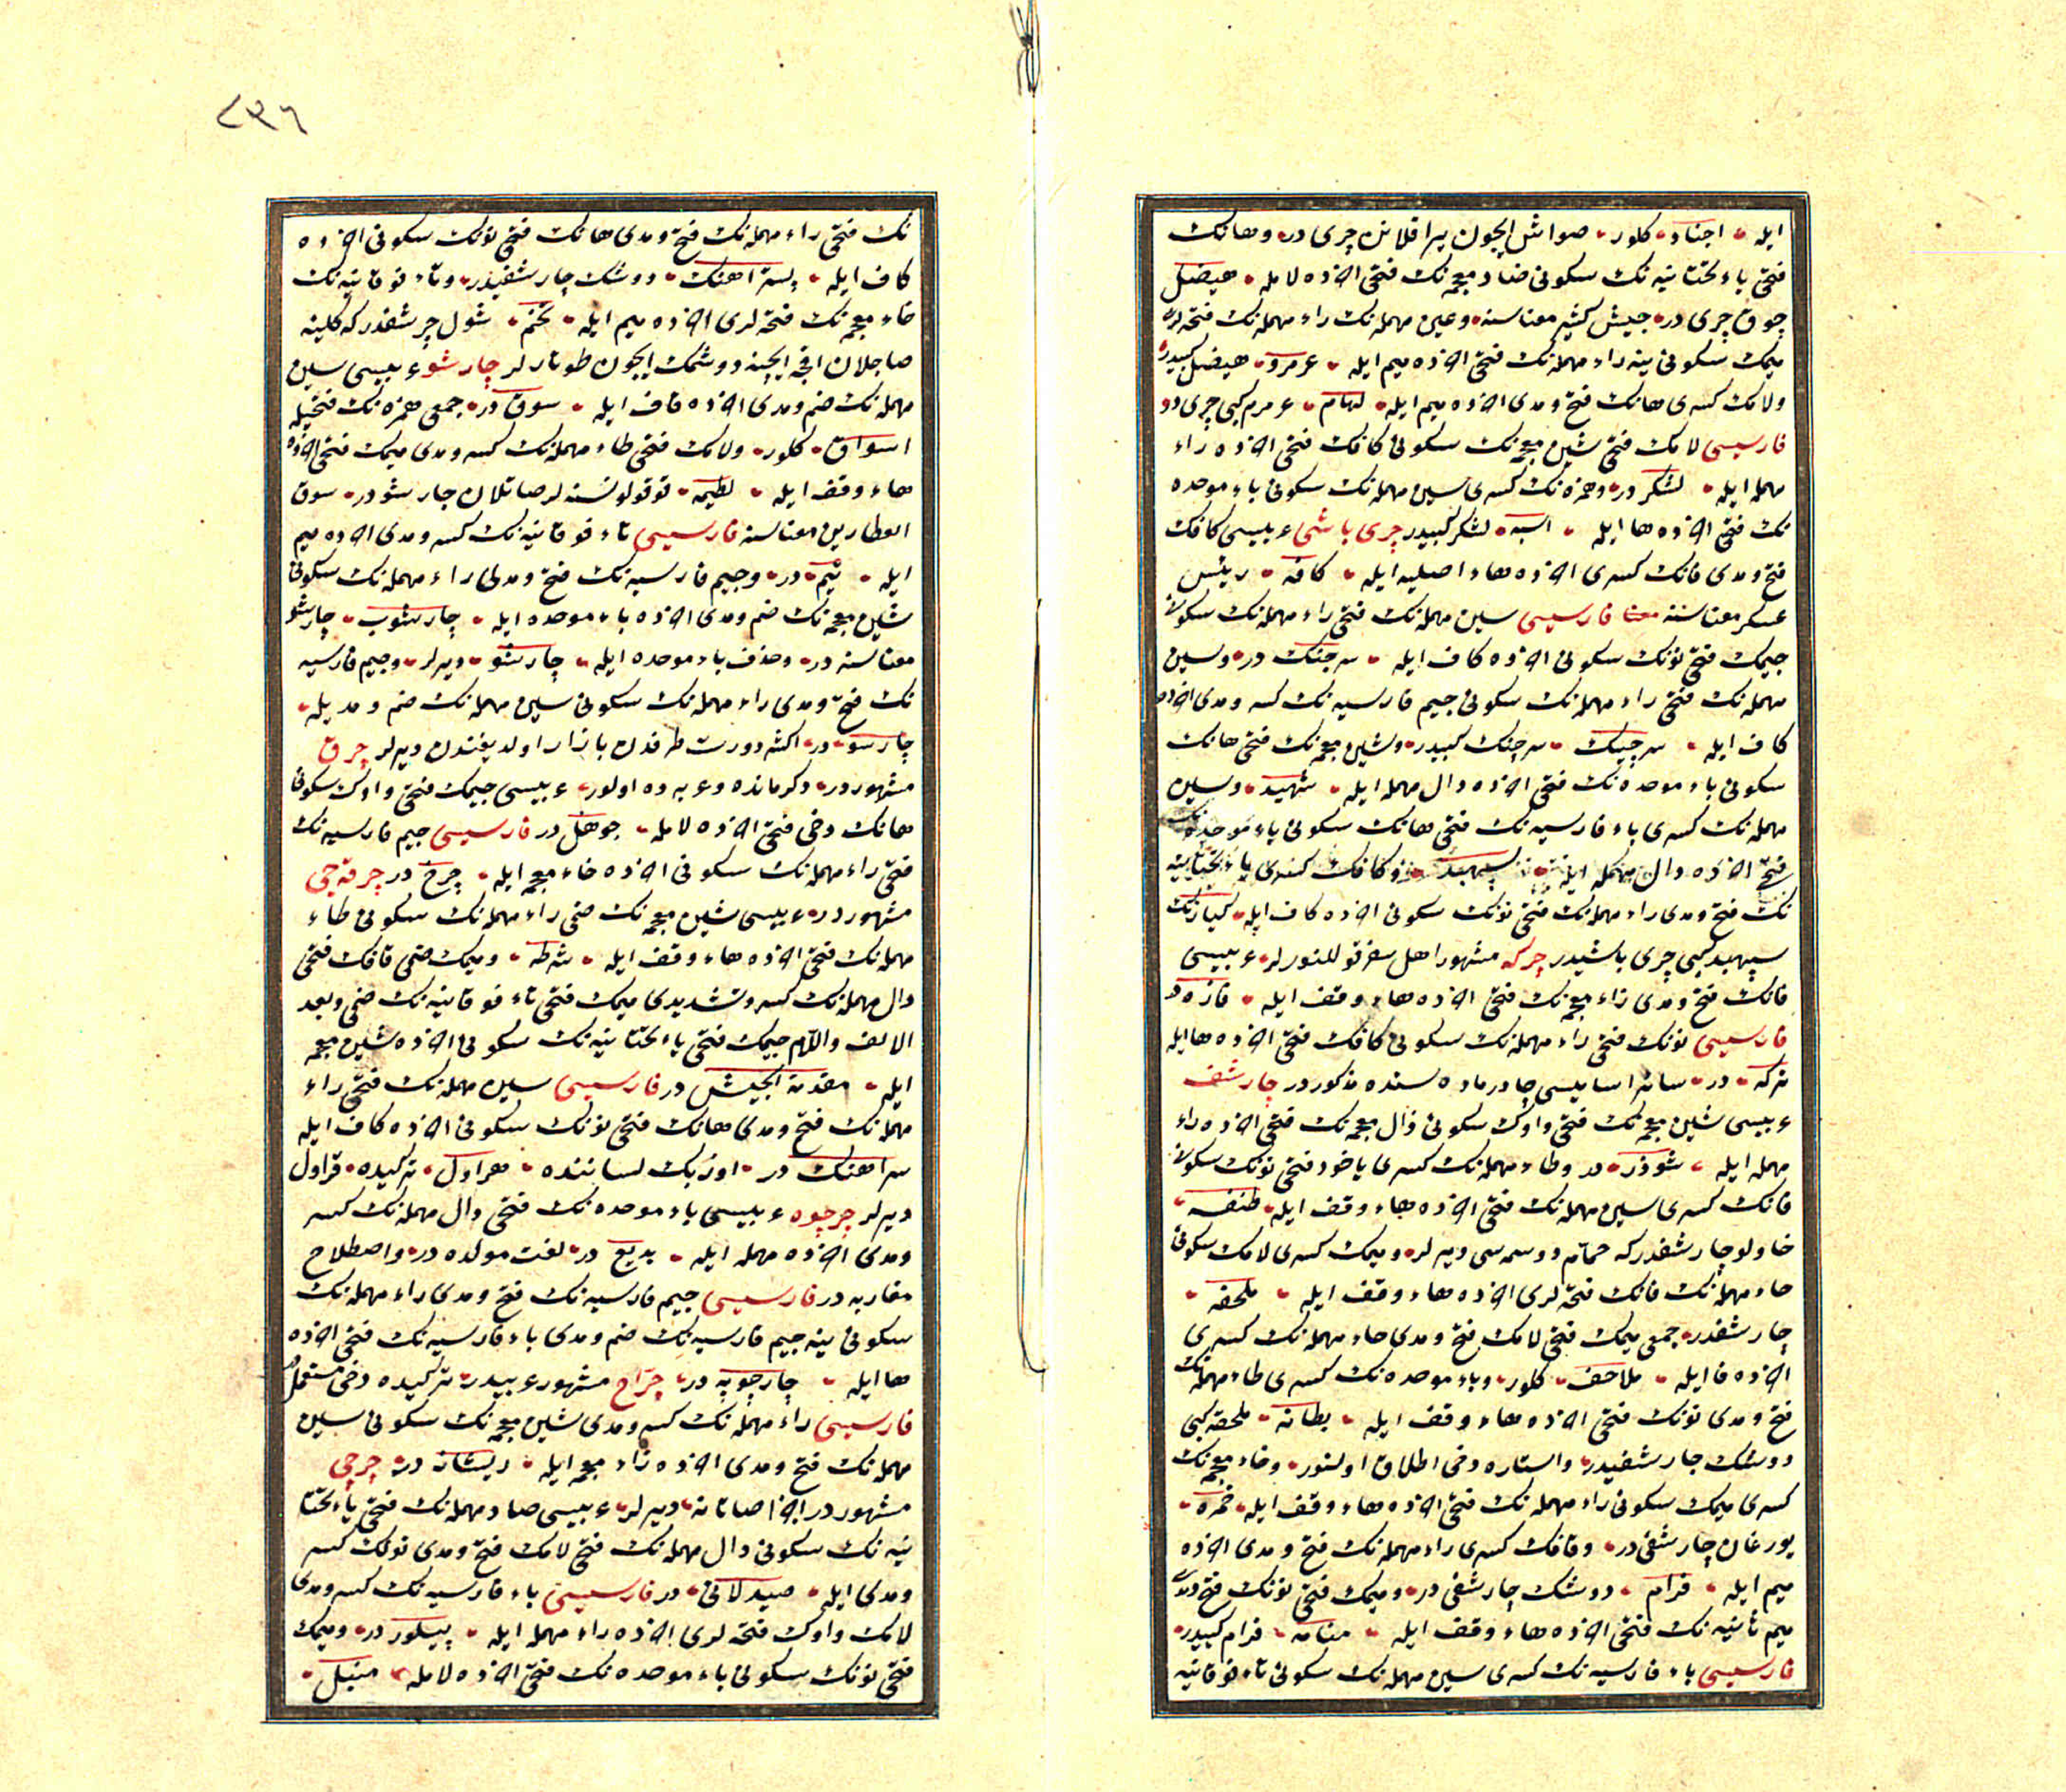 ایله • اجناد • کلور • صواش ایچون یراقلانن چری در • وهانک
فتحی یاء تحتانیه نک سکونی ضاد معجمه نک فتحی اخرده لامله • هیضل
چوق چری در • جیش کثیر معناسنه • وعین مهمله نک راء مهمله نک فتحه لری
میمک سکونی ینه راء مهمله نک فتحی اخرده میم ایله • عرمرم • هیضل کبیدر
ولامک کسری هانک فتح ومدی اخرده میم ایله • لهام • عرمرم کبی چری در
فارسیسی لامک فتحی شین معجمه نک سکونی کافک فتحی اخرده راء
مهمله ایله • لشکر در • وهمزه نک کسری سین مهمله نک سکونی باء موحده
نک فتحی اخرده ها ایله • اسبه • لشکر کبیدر چری باشی عربیسی کافک
فتح ومدی فانک کسری اخرده هاء اصلیه ایله • کافه • رئیس
عسکر معناسنه فارسیسی سین مهمله نک فتحی راء مهمله نک سکونی
جیمک فتحی نونک سکونی اخرده کاف ایله • سرجنک در • وسین
مهمله نک فتحی راء مهمله نک سکونی جیم فارسیه نک کسر ومدی اخرده
کاف ایله • سرچیک • سرجنک کبیدر • وشین معجمه نک فتحی هانک
سکونی باء موحده نک فتحی اخرده دال مهمله ایله • شهبد • وسین
مهمله نک کسری باء فارسیه نک فتحی هانک سکونی باء موحده نک
فتحی اخرده دال مهمله ایله • سپهبد • وکافک کسری یاء تحتانیه
نک فتح ومدی راء مهمله نک فتحی نونک سکونی اخرده کاف ایله • کیارنک
سپهبد کبی چری باشیدر چرکه مشهور اهل سفر قوللنورلر • عربیسی
فانک فتح ومدی زاء معجمه نک فتحی اخرده هاء وقف ایله • فازه در
فارسیسی نونک فتحی راء مهمله نک سکونی کافک فتحی اخرده ها ایله
نرکه • در • سائر اسامیسی چادر ماده سنده مذکور در چارشف
عربیسی شین معجمه نک فتحی واوک سکونی ذال معجمه نک فتحی اخرده راء
مهمله ایله • شوذر • در وطاء مهمله نک کسری یاخود فتحی نونک سکونی
فانک کسری سین مهمله نک فتحی اخرده هاء وقف ایله • طنفسه •
خاولو چارشفدر که حمام دوسمه سی دیرلر • ومیمک کسری لامک سکونی
حاء مهمله نک فانک فتحه لری اخرده هاء وقف ایله • ملحفه •
چارشفدر • جمعی میمک فتحی لامک فتح ومدی حاء مهمله نک کسری
اخرده فا ایله • ملاحف • کلور • وباء موحده نک کسری طاء مهمله نک
فتح ومدی نونک فتحی اخرده هاء وقف ایله • بطانه • ملحفه کبی
دوشک چارشفیدر • واستاره دخی اطلاق اولنور • وخاء معجمه نک
کسری میمک سکونی راء مهمله نک فتحی اخرده هاء وقف ایله • خمره •
یورغان چارشفی در • وقافک کسری راء مهمله نک فتح ومدی اخرده
میم ایله • قرام • دوشک چارشفی در • ومیمک فتحی نونک فتح ومدی
میم ثانیه نک فتحی اخرده هاء وقف ایله • منامه • قرام کبیدر •
فارسیسی باء فارسیه نک کسری سین مهمله نک سکونی تاء فوقانیه
٢٣٦
نک فتحی راء مهمله نک فتح ومدی هانک فتحی نونک سکونی اخرده
کاف ایله • پستراهنک • دوشک چارشفیدر • وتاء فوقانیه نک
خاء معجمه نک فتحه لری اخرده میم ایله • تخم • شول چرشفدر که کلینه
صاچلان اقچه ایچینه دوشمک ایچون طوتارلر چارشو عربیسی سین
مهمله نک ضم ومدی اخرده قاف ایله • سوق در • جمعی همزه نک فتحیله
اسواق • کلور • ولامک فتحی طاء مهمله نک کسر ومدی میمک فتحی اخرده
هاء وقف ایله • لطیمه • قوقولو نسنه لر صاتلان چارشو در • سوق
العطارین معناسنه فارسیسی تاء فوقانیه نک کسر ومدی اخرده میم
ایله • تیم • در • وجیم فارسیه نک فتح ومدی راء مهمله نک سکونی
شین معجمه نک ضم ومدی اخرده باء موحده ایله • چارشوب • چارشو
معناسنه در • وحذف باء موحده ایله • چارشو • دیرلر • وجیم فارسیه
نک فتح ومدی راء مهمله نک سکونی سین مهمله نک ضم ومدیله •
چارسو • در • اکثر دورت طرفدن بازار اولدیغندن دیرلر چرق
مشهور در • دکرمانده وعربه ده اولور • عربیسی جیمک فتحی واوک سکونی
هانک دخی فتحی اخرده لامله • جوهل در فارسیسی جیم فارسیه نک
فتحی راء مهمله نک سکونی اخرده خاء معجمه ایله • چرخ در چرقه جی
مشهور در • عربیسی شین معجمه نک ضمی راء مهمله نک سکونی طاء
مهمله نک فتحی اخرده هاء وقف ایله • شرطه • ومیمک ضمی قافک فتحی
دال مهمله نک کسر وتشدیدی میمک فتحی تاء فوقانیه نک ضمی وبعد
الالف واللام جیمک فتحی یاء تحتانیه نک سکونی اخرده شین معجمه
ایله • مقدمة الجیش در فارسیسی سین مهمله نک فتحی راء
مهمله نک فتح ومدی هانک فتحی نونک سکونی اخرده کاف ایله
سراهنک در • اوزبک لساننده • هراول • ترکیده • قراول
دیرلر چرچوه عربیسی باء موحده نک فتحی دال مهمله نک کسر
ومدی اخرده مهمله ایله • بدیع در • لغت مولده در • واصطلاح
مغاربه در فارسیسی جیم فارسیه نک فتح ومدی راء مهمله نک
سکونی ینه جیم فارسیه نک ضم ومدی باء فارسیه نک فتحی اخرده
ها ایله • چارچوپه در • چراح مشهور عربیدر • ترکیده دخی مستعملدر
فارسیسی راء مهمله نک کسر ومدی شین معجمه نک سکونی سین
مهمله نک فتح ومدی اخرده زاء معجمه ایله • ریشساز در • چرچی
مشهور در اجزا صاتانه • دیرلر • عربیسی صاد مهمله نک فتحی یاء تحتا
نیه نک سکونی دال مهمله نک فتحی لامک فتح ومدی نونک کسر
ومدی ایله • صیدلانی • در فارسیسی باء فارسیه نک کسر ومدی
لامک واوک فتحه لری اخرده راء مهمله ایله • پیلور در • ومیمک
فتحی نونک سکونی باء موحده نک فتحی اخرده لامله • منبل •